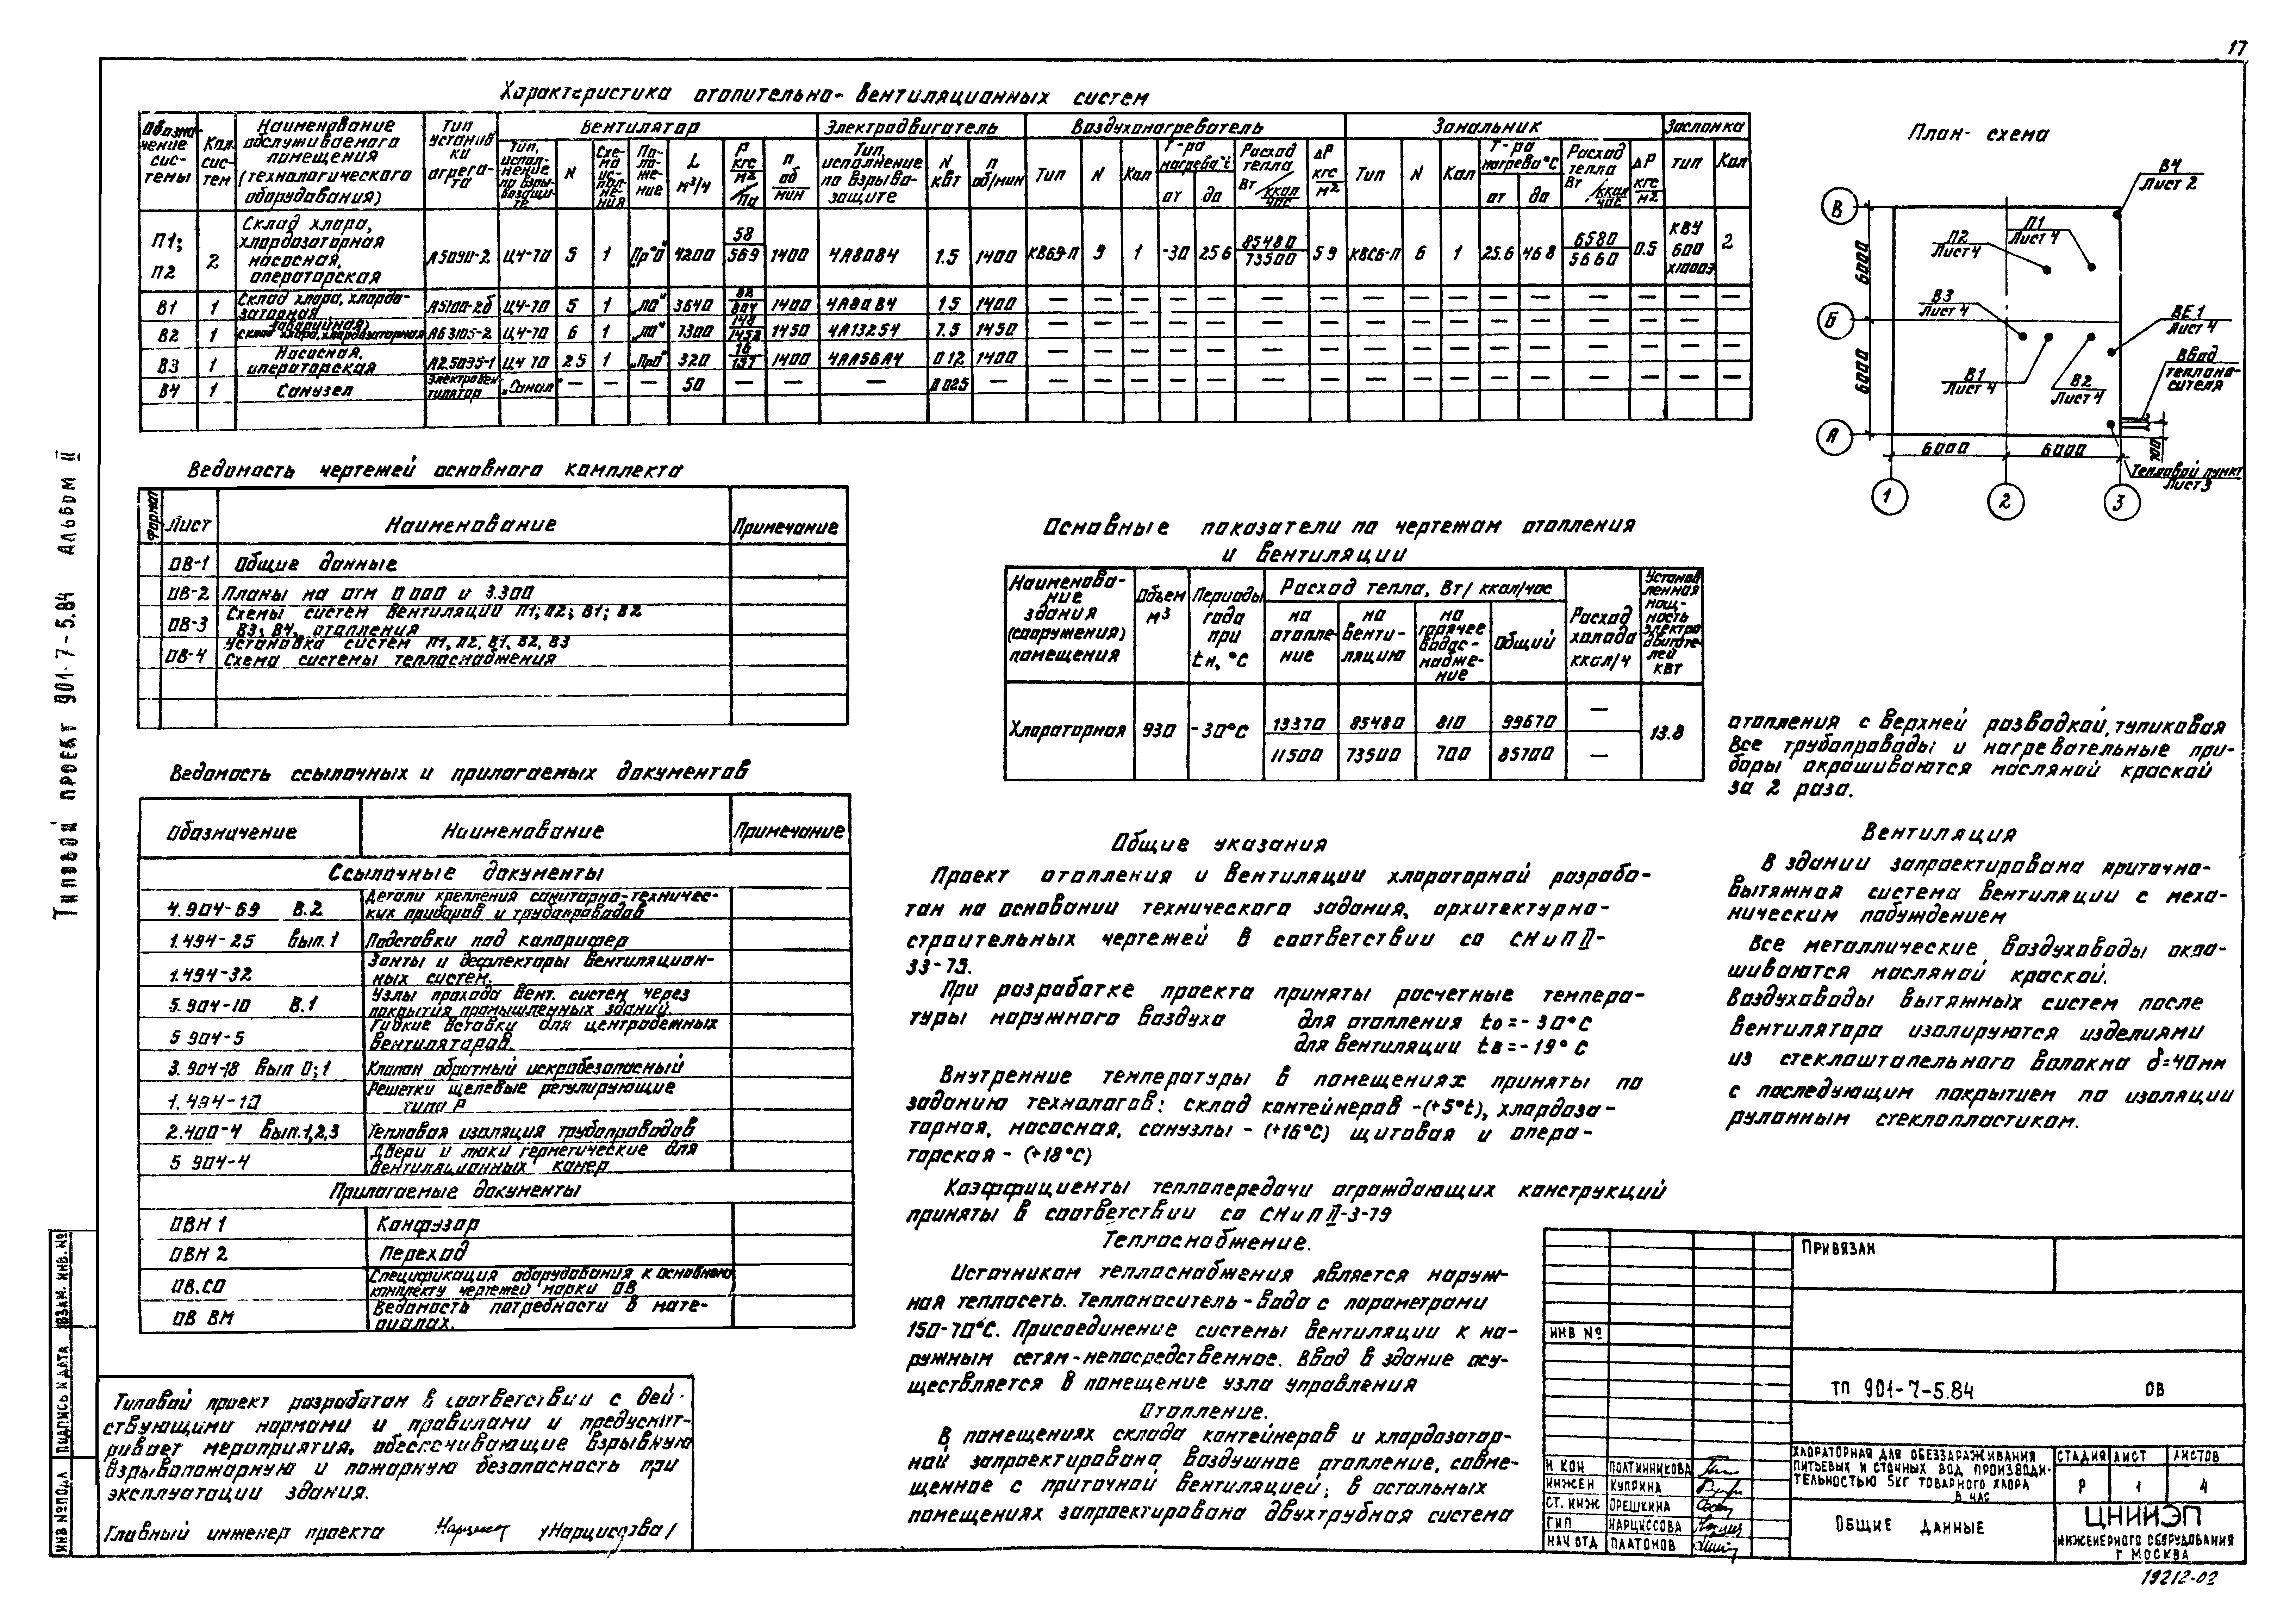 17
Типовой проект 901-7-5.84 Альбом II
Характеристика отопительно-вентиляционных систем
Обозначение системы | Кол. систем | Наименование обслуживаемого помещения (технологического оборудования) | Тип установки агрегата | Вентилятор | Электродвигатель | Воздухонагреватель | Зональник | Заслонка
Тип, исполнение по взрывозащите | N | Схема исполнения | Положение | L м³/ч | P кгс/м² / Па | n об/мин | Тип, исполнение по взрывозащите | N кВт | n об/мин | Тип | N | Кол | Т-ра нагрева °С от до | Расход тепла Вт/ккал/час | ΔP кгс/м² | Тип | N | Кол | Т-ра нагрева °С от до | Расход тепла Вт/ккал/час | ΔP кгс/м² | тип | Кол
П1; П2 | 2 | Склад хлора, хлордозаторная насосная, операторская | А5090-2 | Ц4-70 | 5 | 1 | "Пр0" | 4200 | 58/569 | 1400 | 4А80В4 | 1.5 | 1400 | КВБ9-П | 9 | 1 | -30 | 25.6 | 85480/73500 | 5.9 | КВС6-П | 6 | 1 | 25.6 | 46.8 | 6580/5660 | 0.5 | КВУ 600х1000Э | 2
В1 | 1 | Склад хлора, хлордозаторная | А5100-2б | Ц4-70 | 5 | 1 | "Л0" | 3640 | 82/804 | 1400 | 4А80В4 | 1.5 | 1400 | — | — | — | — | — | — | — | — | — | — | — | — | — | — | — | —
В2 | 1 | (аварийная) Склад хлора, хлордозаторная | А63105-2 | Ц4-70 | 6 | 1 | "Л0" | 7300 | 148/1452 | 1450 | 4А132S4 | 7.5 | 1450 | — | — | — | — | — | — | — | — | — | — | — | — | — | — | — | —
В3 | 1 | Насосная, операторская | А2.5095-1 | Ц4-70 | 2.5 | 1 | "Пр0" | 320 | 16/157 | 1400 | 4АА56А4 | 0.12 | 1400 | — | — | — | — | — | — | — | — | — | — | — | — | — | — | — | —
В4 | 1 | Санузел | Электровентилятор | "Самал" | — | — | — | 50 | — | — | — | 0.025 | — | — | — | — | — | — | — | — | — | — | — | — | — | — | — | — | —
План-схема
В4
Лист 2
П1
Лист 4
П2
Лист 4
В3
Лист 4
ВЕ1
Лист 4
Ввод
теплоно-
сителя
В1
Лист 4
В2
Лист 4
Тепловой пункт
Лист 3
В
Б
А
6000
6000
6000
6000
700
1
2
3
Ведомость чертежей основного комплекта
Формат | Лист | Наименование | Примечание
ОВ-1 | Общие данные
ОВ-2 | Планы на отм 0.000 и 3.300
ОВ-3 | Схемы систем вентиляции П1; П2; В1; В2
В3; В4, отопления
ОВ-4 | Установка систем П1, П2, В1, В2, В3
Схема системы теплоснабжения
Ведомость ссылочных и прилагаемых документов
Обозначение | Наименование | Примечание
Ссылочные документы
4.904-69 В.2 | Детали крепления санитарно-техничес-
ких приборов и трубопроводов
1.494-25 Вып.1 | Подставки под калорифер
1.494-32 | Зонты и дефлекторы вентиляцион-
ных систем.
5.904-10 В.1 | Узлы прохода вент. систем через
покрытия промышленных зданий.
5 904-5 | Гибкие вставки для центробежных
вентиляторов.
3.904-18 Вып 0;1 | Клапан обратный искробезопасный
1.494-10 | Решетки щелевые регулирующие
типа Р
2.400-4 Вып.1,2,3 | Тепловая изоляция трубопроводов
5 904-4 | Двери и люки герметические для
вентиляционных камер
Прилагаемые документы
ОВН 1 | Конфузор
ОВН 2 | Переход
ОВ.СО | Спецификация оборудования к основному
комплекту чертежей марки ОВ
ОВ ВМ | Ведомость потребности в мате-
риалах.
Типовой проект разработан в соответствии с дей-
ствующими нормами и правилами и предусмат-
ривает мероприятия, обеспечивающие взрывную
взрывопожарную и пожарную безопасность при
эксплуатации здания.
Главный инженер проекта /Нарциссова/
Основные показатели по чертежам отопления
и вентиляции
Наименование здания (сооружения) помещения | Объем м³ | Периоды года при tн, °С | Расход тепла, Вт/ккал/час | Расход холода ккал/ч | Установленная мощность электродвигателей кВт
на отопление | на вентиляцию | на горячее водоснабжение | Общий
Хлораторная | 930 | -30°С | 13370 | 85480 | 810 | 99670 | — | 13.8
11500 | 73500 | 700 | 85700 | —
Общие указания
Проект отопления и вентиляции хлораторной разрабо-
тан на основании технического задания, архитектурно-
строительных чертежей в соответствии со СНиП II-
33-75.
При разработке проекта приняты расчетные темпера-
туры наружного воздуха для отопления tо=-30°С
для вентиляции tв=-19°С
Внутренние температуры в помещениях приняты по
заданию технологов: склад контейнеров -(+5°t), хлордоза-
торная, насосная, санузлы - (+16°С) щитовая и опера-
торская - (+18°С)
Коэффициенты теплопередачи ограждающих конструкций
приняты в соответствии со СНиП II-3-79
Теплоснабжение.
Источником теплоснабжения является наруж-
ная теплосеть. Теплоноситель - вода с параметрами
150-70°С. Присоединение системы вентиляции к на-
ружным сетям - непосредственное. Ввод в здание осу-
ществляется в помещение узла управления
Отопление.
В помещениях склада контейнеров и хлордозатор-
ной запроектировано воздушное отопление, совме-
щенное с приточной вентиляцией; в остальных
помещениях запроектирована двухтрубная система
отопления с верхней разводкой, тупиковая
Все трубопроводы и нагревательные при-
боры окрашиваются масляной краской
за 2 раза.
Вентиляция
В здании запроектирована приточно-
вытяжная система вентиляции с меха-
ническим побуждением
Все металлические воздуховоды окра-
шиваются масляной краской.
Воздуховоды вытяжных систем после
вентилятора изолируются изделиями
из стеклоштапельного волокна δ=40мм
с последующим покрытием по изоляции
рулонным стеклопластиком.
Привязан
ИНВ №
ТП 901-7-5.84 ОВ
Н КОН Полтинникова
Инжен Куприна
Ст. инж Орешкина
ГИП Нарциссова
Нач отд Платонов
Хлораторная для обеззараживания
питьевых и сточных вод производи-
тельностью 5кг товарного хлора
в час
Стадия | Лист | Листов
Р | 1 | 4
Общие данные
ЦНИИЭП
инженерного оборудования
г Москва
19212-02
Инв № подл
Подпись и дата
Взам. инв. №